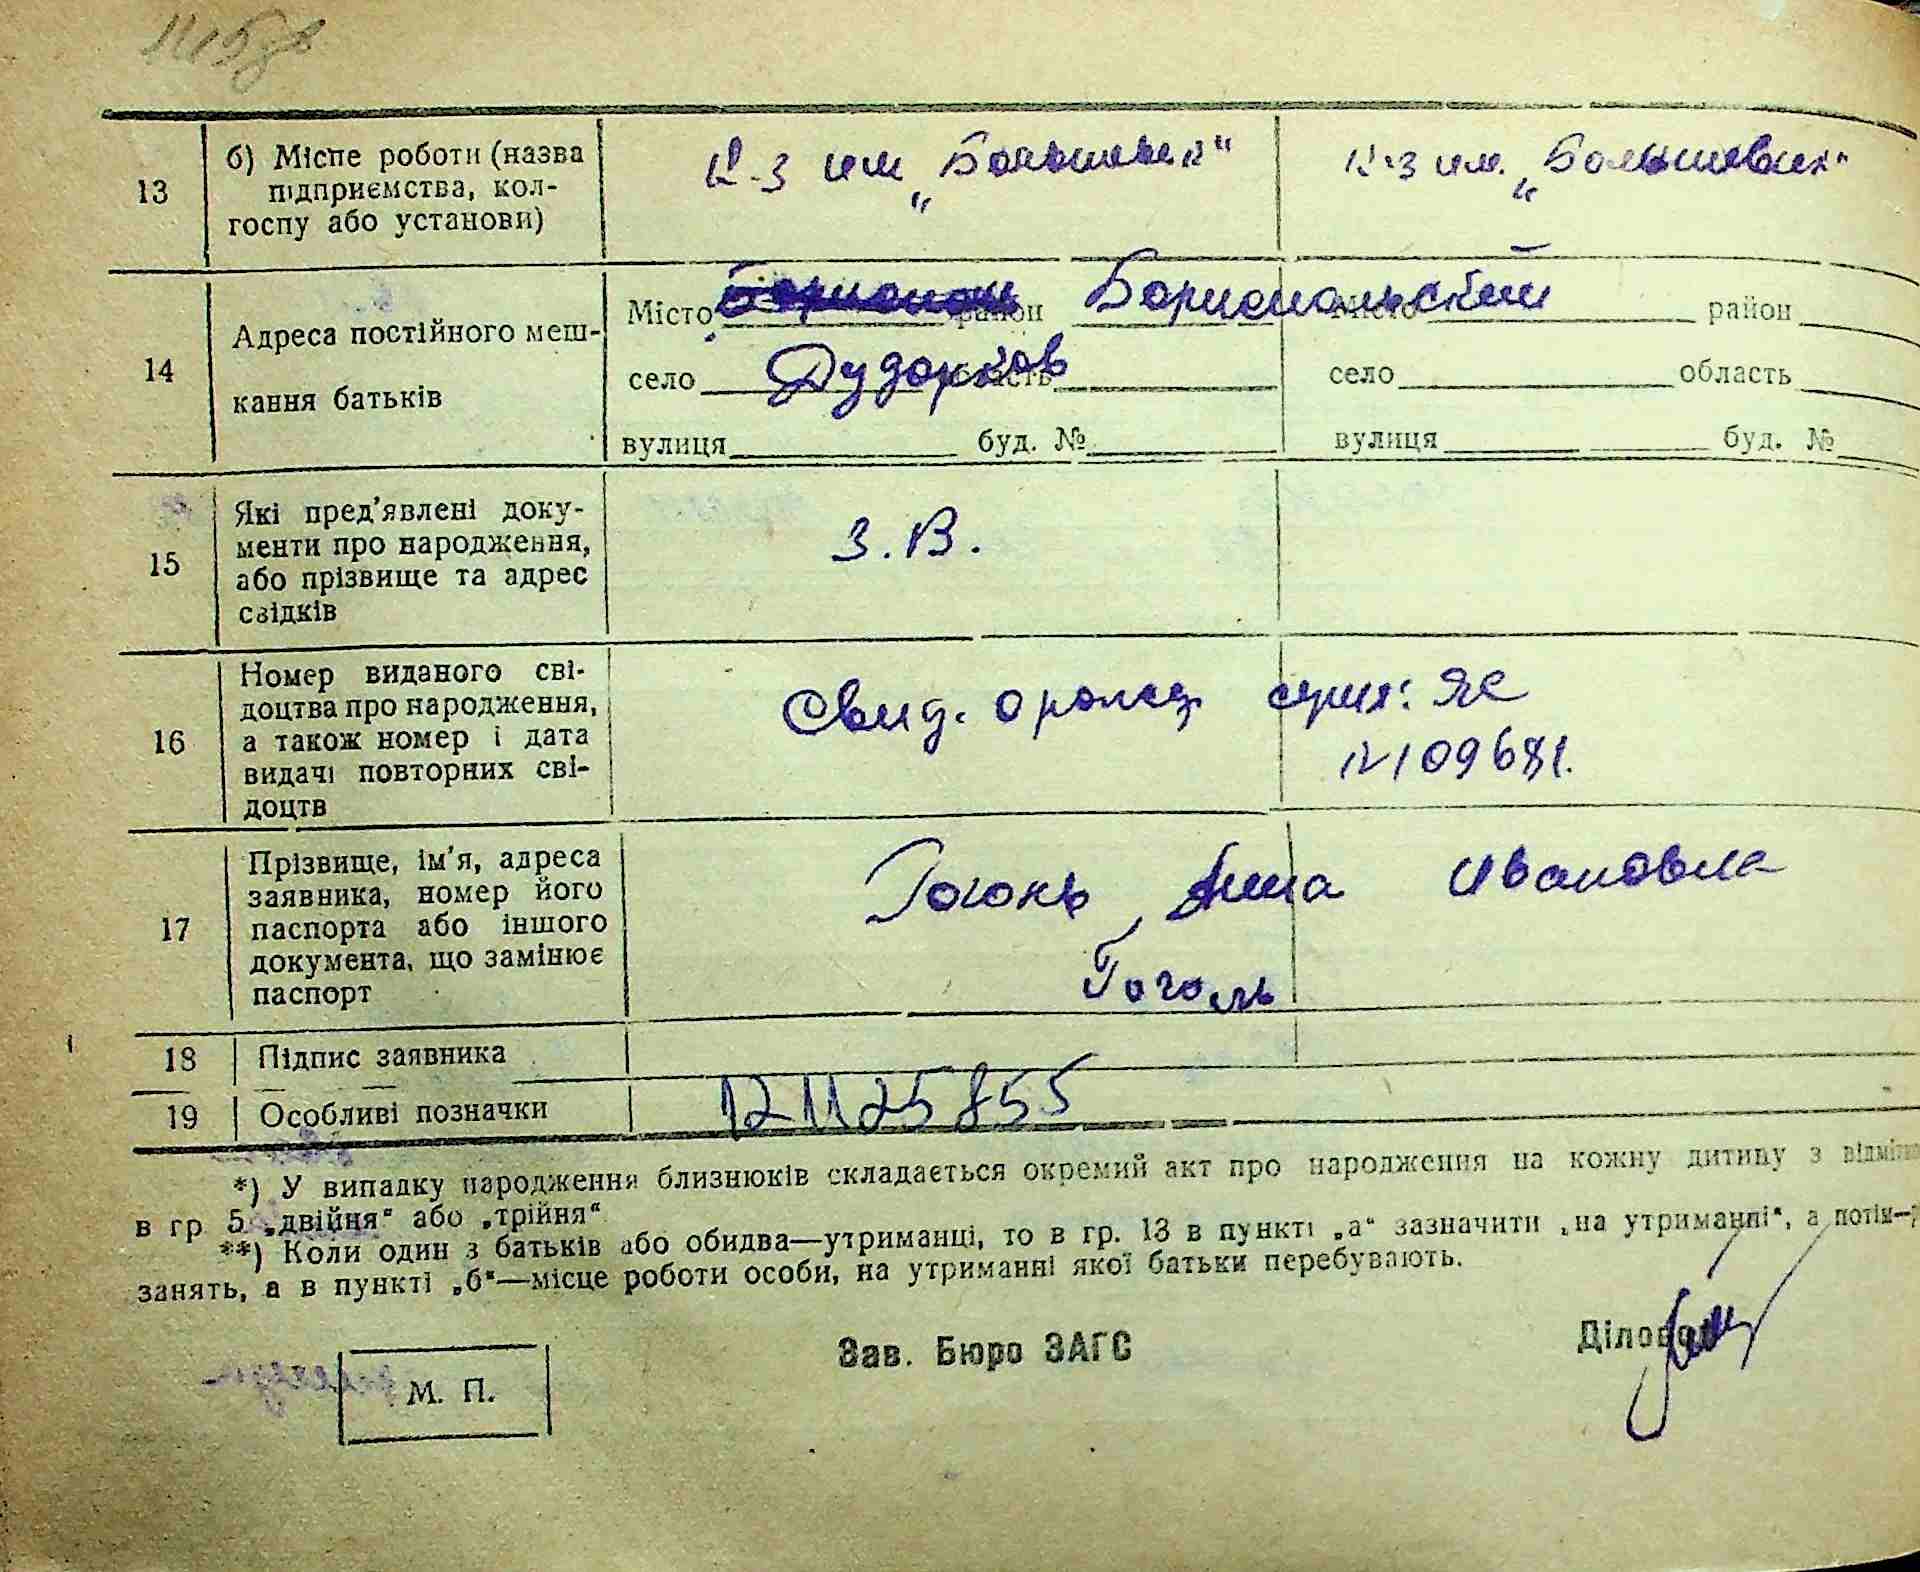 13
б) Місце роботи (назва
підприємства, кол-
госпу або установи)
К-з им „Большевик“
К-з им. „Большевик“
14
Адреса постійного меш-
кання батьків
Місто район Бориспольский
Місто район
село Дударков область
село область
вулиця буд. №
вулиця буд. №
15
Які пред'явлені доку-
менти про народження,
або прізвище та адрес
свідків
З.В.
16
Номер виданого сві-
доцтва про народження,
а також номер і дата
видачі повторних сві-
доцтв
Свид. о рожд. серия: ЯС
№109681.
17
Прізвище, ім'я, адреса
заявника, номер його
паспорта або іншого
документа, що замінює
паспорт
Анна Ивановна
Гоголь
18
Підпис заявника
19
Особливі позначки
*) У випадку народження близнюків складається окремий акт про народження на кожну дитину з
в гр 5 „двійня“ або „трійня“
**) Коли один з батьків або обидва—утриманці, то в гр. 13 в пункті „а“ зазначити „на утриманні“, а потім—
занять, а в пункті „б“—місце роботи особи, на утриманні якої батьки перебувають.
Зав. Бюро ЗАГС
М. П.